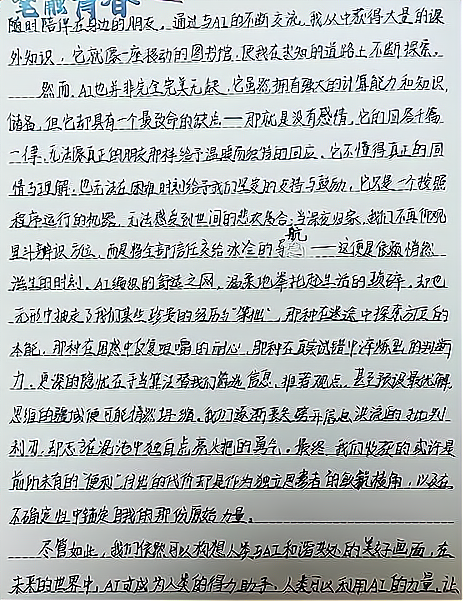 笔融青春
随时陪伴在身边的朋友。通过与AI的不断交流，我从中获得大量的课
外知识，它就像一座移动的图书馆，供我在求知的道路上不断探索。
然而，AI也并非完全完美无缺，它虽然拥有强大的计算能力和知识
储备，但它却具有一个最致命的缺点——那就是没有感情，它的回答千篇
一律，无法像真正的朋友那样给予温暖而贴切的回应。它不懂得真正的同
情与理解，也无法在困难时刻给予我们坚定的支持与鼓励，它只是一个按照
程序运行的机器，无法感受到世间的悲欢离合；当深夜归家，我们不再仰观
星斗辨识方位，而是将全部信任交给冰冷的导航——这便是依赖悄然
滋生的时刻。AI编织的舒适之网，温柔地摩托起生活的琐碎，却也
无形中抽走了我们某些珍贵的经历与"笨拙"，那种在迷途中探索方向的
本能，那种在困惑中反复咀嚼的耐心，那种在真实试错中淬炼出的判断
力。更深的隐忧在于当算法替我们筛选信息、推荐观点、甚至预设最优解，
思维的疆域便可能悄然坍缩。我们逐渐丢失劈开信息洪流的批判
利刃，却忘在混沌中独自点亮火把的勇气。最终，我们收获的或许是
前所未有的"便利"，付出的代价却是作为独立思考者的敏锐棱角，以及在
不确定性中锚定自我的那份原始力量。
尽管如此，我们依然可以构想人类与AI和谐共处的美好画面，在
未来的世界中，AI可成为人类的得力助手。人类可以利用AI的力量，让